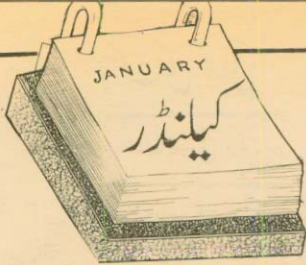 JANUARY
کیلنڈر